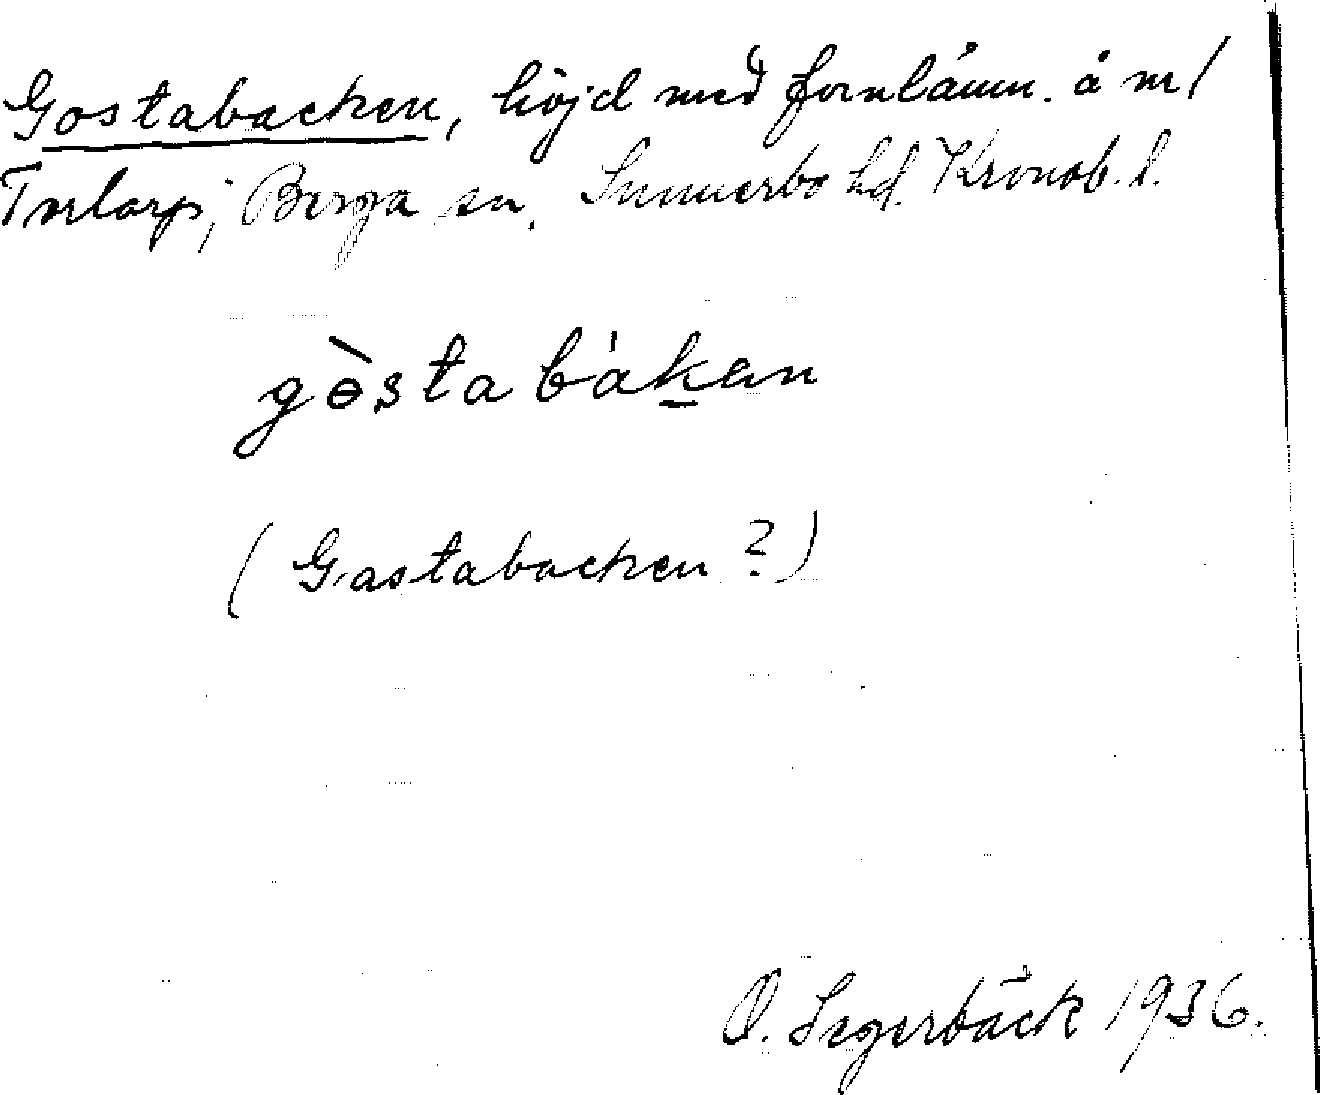 Gostabacken, höjd med fornlämn. å m/
Torlarp, Berga sn, Sunnerbo hd. Kronob. l.
gòstabákan
(Gastabacken?)
O. Segerbäck 1936.